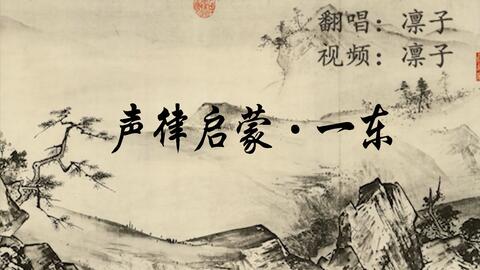 翻唱：凛子
视频：凛子
声律启蒙·一东